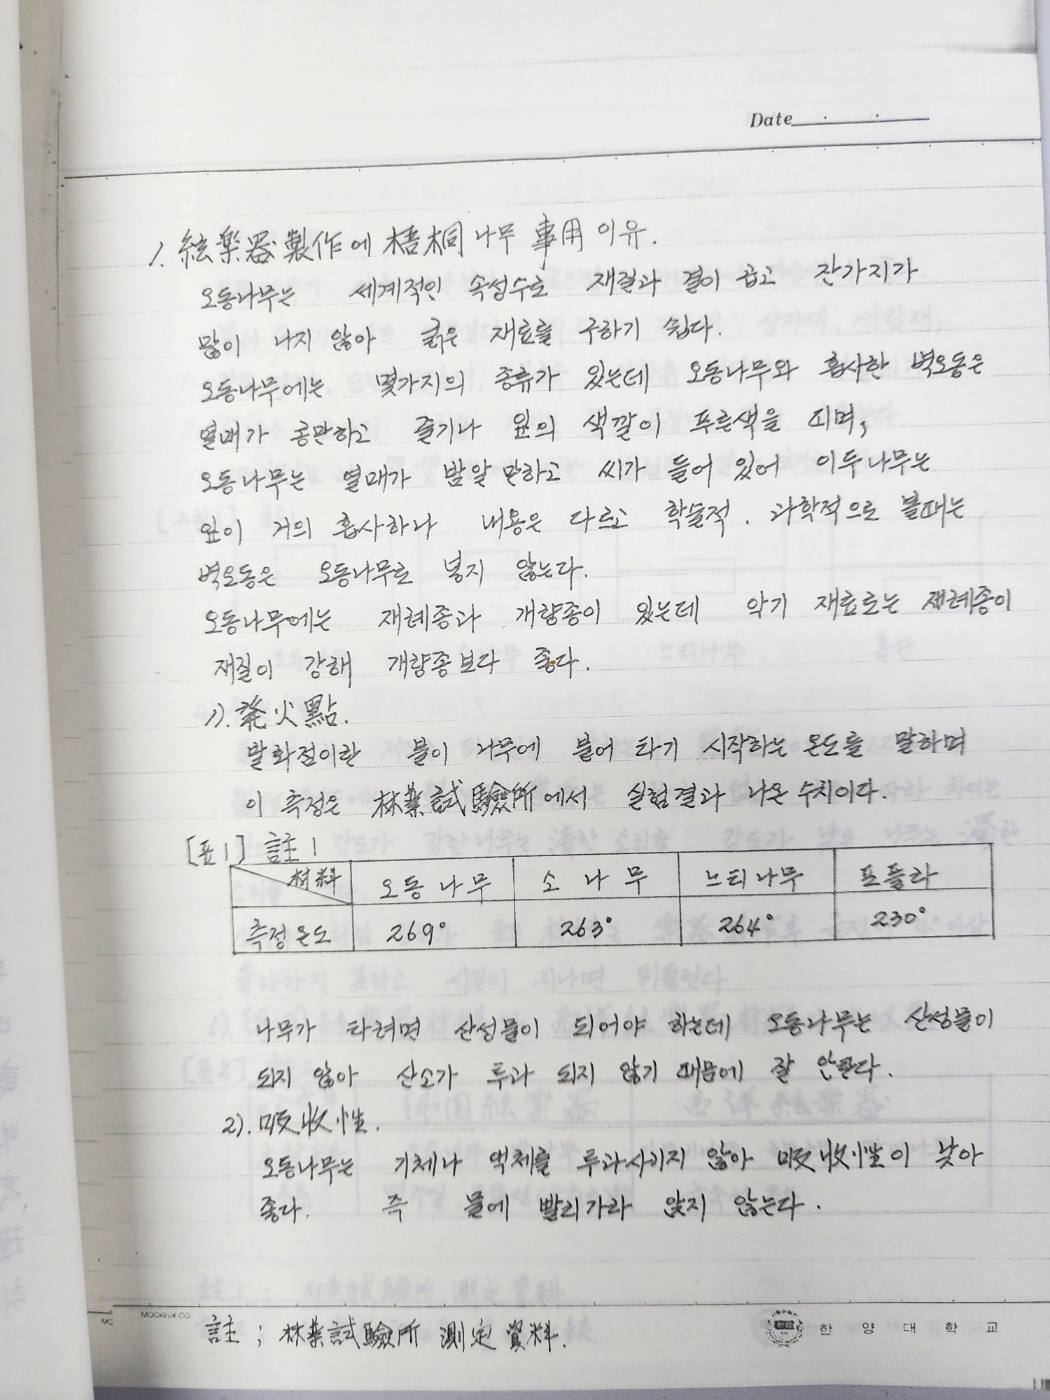 Date
1. 絃楽器製作에 梧桐나무 事用 이유.
오동나무는 세계적인 속성수로 재질과 결이 곱고 잔가지가
많이 나지 않아 굵은 재료를 구하기 쉽다.
오동나무에는 몇가지의 종류가 있는데 오동나무와 흡사한 벽오동은
열매가 콩만하고 줄기나 잎의 색깔이 푸른색을 띠며,
오동나무는 열매가 밤알만하고 씨가 들어 있어 이두나무는
잎이 거의 흡사하나 내용은 다르고 학술적. 과학적으로 볼때는
벽오동은 오동나무로 넣지 않는다.
오동나무에는 재래종과 개량종이 있는데 악기 재료로는 재래종이
재질이 강해 개량종보다 좋다.
1). 発火點.
발화점이란 불이 나무에 붙어 타기 시작하는 온도를 말하며
이 측정은 林業試驗所에서 실험결과 나온 수치이다.
[표1] 註1
材料 오동나무 소나무 느티나무 포플라
측정온도 269° 263° 264° 230°
나무가 타려면 산성물이 되어야 하는데 오동나무는 산성물이
되지 않아 산소가 투과 되지 않기 때문에 잘 안탄다.
2). 吸收性.
오동나무는 기체나 액체를 투과시키지 않아 吸收性이 낮아
좋다. 즉 물에 빨리 가라 앉지 않는다.
MOOKEUK CO
MC
註; 林業試驗所 測定 資料.
한양대학교